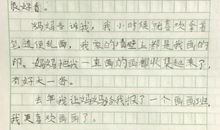 很好看。
妈妈告诉我，我小时候就喜欢拿着
笔道便乱画，我家的墙壁上都是我画的
印。妈妈把我一直画的画都收集起来了，
有好大一沓。
去年我让妈妈给我报了一个画画班，
我更喜欢画画了。